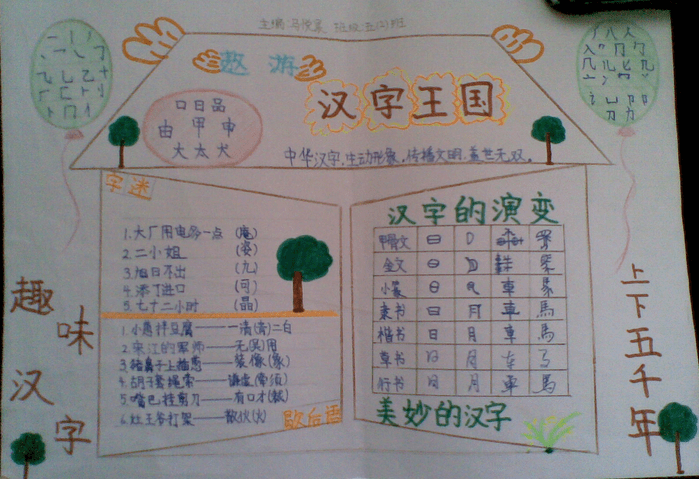 主编:马悦晨 班级:五(2)班
遨游
汉字王国
口日品
由甲申
大太犬
中华汉字,生动形象,传播文明,盖世无双。
字迷
1.大厂用电多一点 (庵)
2.二小姐 (姿)
3.旭日不出 (九)
4.添丁进口 (可)
5.七十二小时 (晶)
1.小葱拌豆腐——一清(青)二白
2.宋江的军师——无(吴)用
3.猪鼻子上插葱——装像(象)
4.胡子套绳索——谦虚(牵须)
5.嘴巴挂剪刀——有口才(裁)
6.灶王爷打架——散伙(火)
歇后语
汉字的演变
甲骨文
金文
小篆
隶书 日 月 車 馬
楷书 日 月 車 馬
草书 日 月
行书 日 月 車 馬
美妙的汉字
趣味汉字
上下五千年